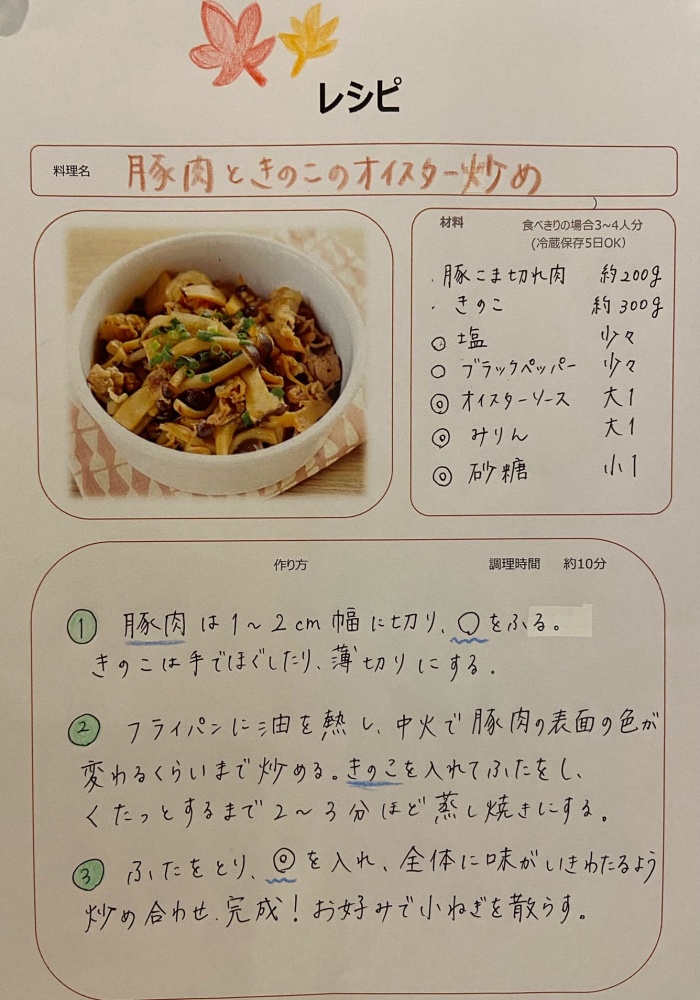 レシピ
料理名 豚肉ときのこのオイスター炒め
材料 食べきりの場合3~4人分
(冷蔵保存5日OK)
・豚こま切れ肉 約200g
・きのこ 約300g
○ 塩 少々
○ ブラックペッパー 少々
◎ オイスターソース 大1
◎ みりん 大1
◎ 砂糖 小1
作り方 調理時間 約10分
① 豚肉は1~2cm幅に切り、○をふる。
きのこは手でほぐしたり、薄切りにする。
② フライパンに油を熱し、中火で豚肉の表面の色が
変わるくらいまで炒める。きのこを入れてふたをし、
くたっとするまで2~3分ほど蒸し焼きにする。
③ ふたをとり、◎を入れ、全体に味がいきわたるよう
炒め合わせ、完成!お好みで小ねぎを散らす。